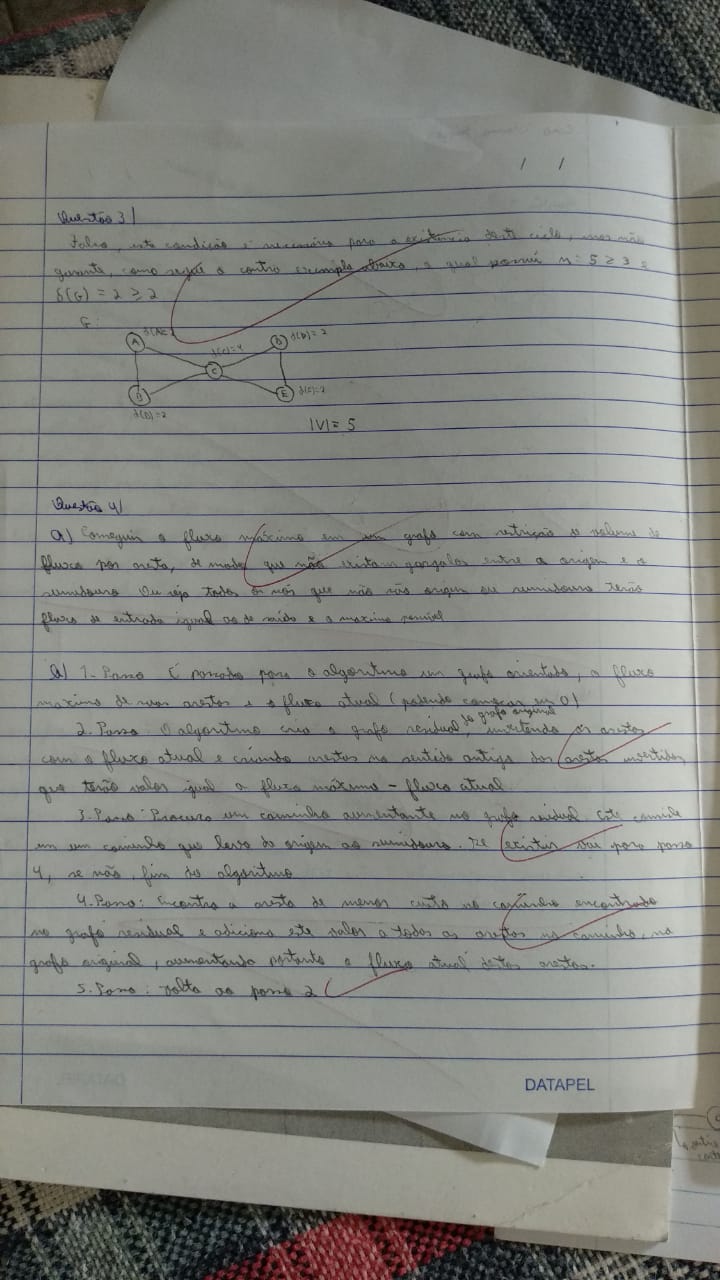 / /
Questão 3|
Falso, esta condição é necessária para a existência deste ciclo, mas não
garante, como segue o contra exemplo abaixo, o qual possui n: 5 ≥ 3 e
δ(G) = 2 ≥ 2
G:
A D d(D)=2
d(C)=4
C
E d(E)=2
d(B)=2
|V|= 5
Questão 4|
a) Conseguir o fluxo máximo em um grafo com restrição de volume de
fluxo por aresta, de modo que não existam gargalos entre a origem e o
sumidouro. Ou seja todos os nós que não são origem ou sumidouro terão
fluxo de entrada igual ao de saída e o maximo possivel
b) 1. Passo É passado para o algoritmo um grafo orientado, o fluxo
maximo de suas arestas e o fluxo atual (podendo começar em 0)
do grafo original
2. Passo. O algoritmo cria o grafo residual, invertendo as arestas
com o fluxo atual e criando arestas no sentido antigo das arestas invertidas
que terão valor igual a fluxo máximo - fluxo atual
3. Passo: Procura um caminho aumentante no grafo residual. Este consiste
em um caminho que leva da origem ao sumidouro. Se existir vai para passo
4, se não, fim do algoritmo
4. Passo: Encontra a aresta de menor custo no caminho encontrado
no grafo residual e adiciona este valor a todas as arestas no caminho, no
grafo original, aumentando portanto o fluxo atual destas arestas.
5. Passo: Volta ao passo 2
DATAPEL